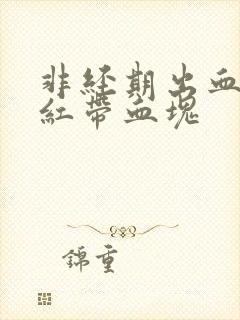 非经期出血
红带血块
锦重